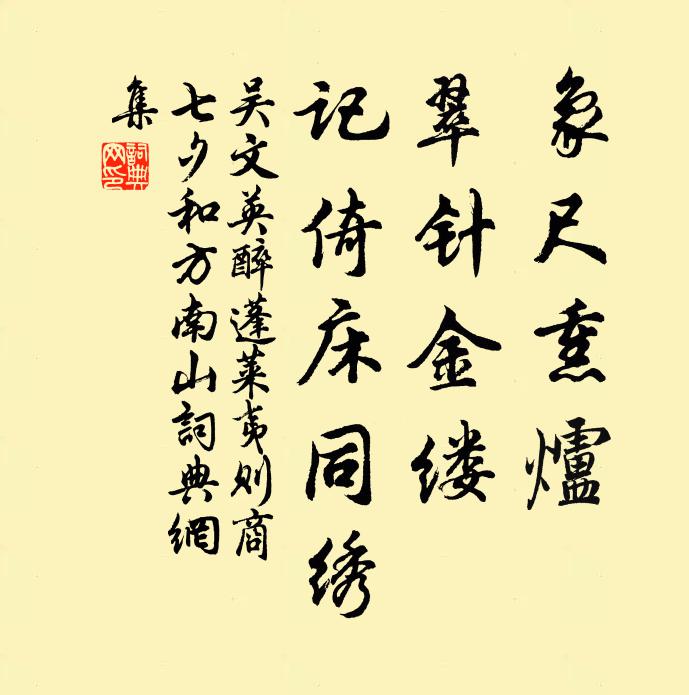 象尺熏爐
翠针金缕
记倚床同绣
吴文英醉蓬莱夷则商
七夕和方南山詞典網
集
詞典
网印